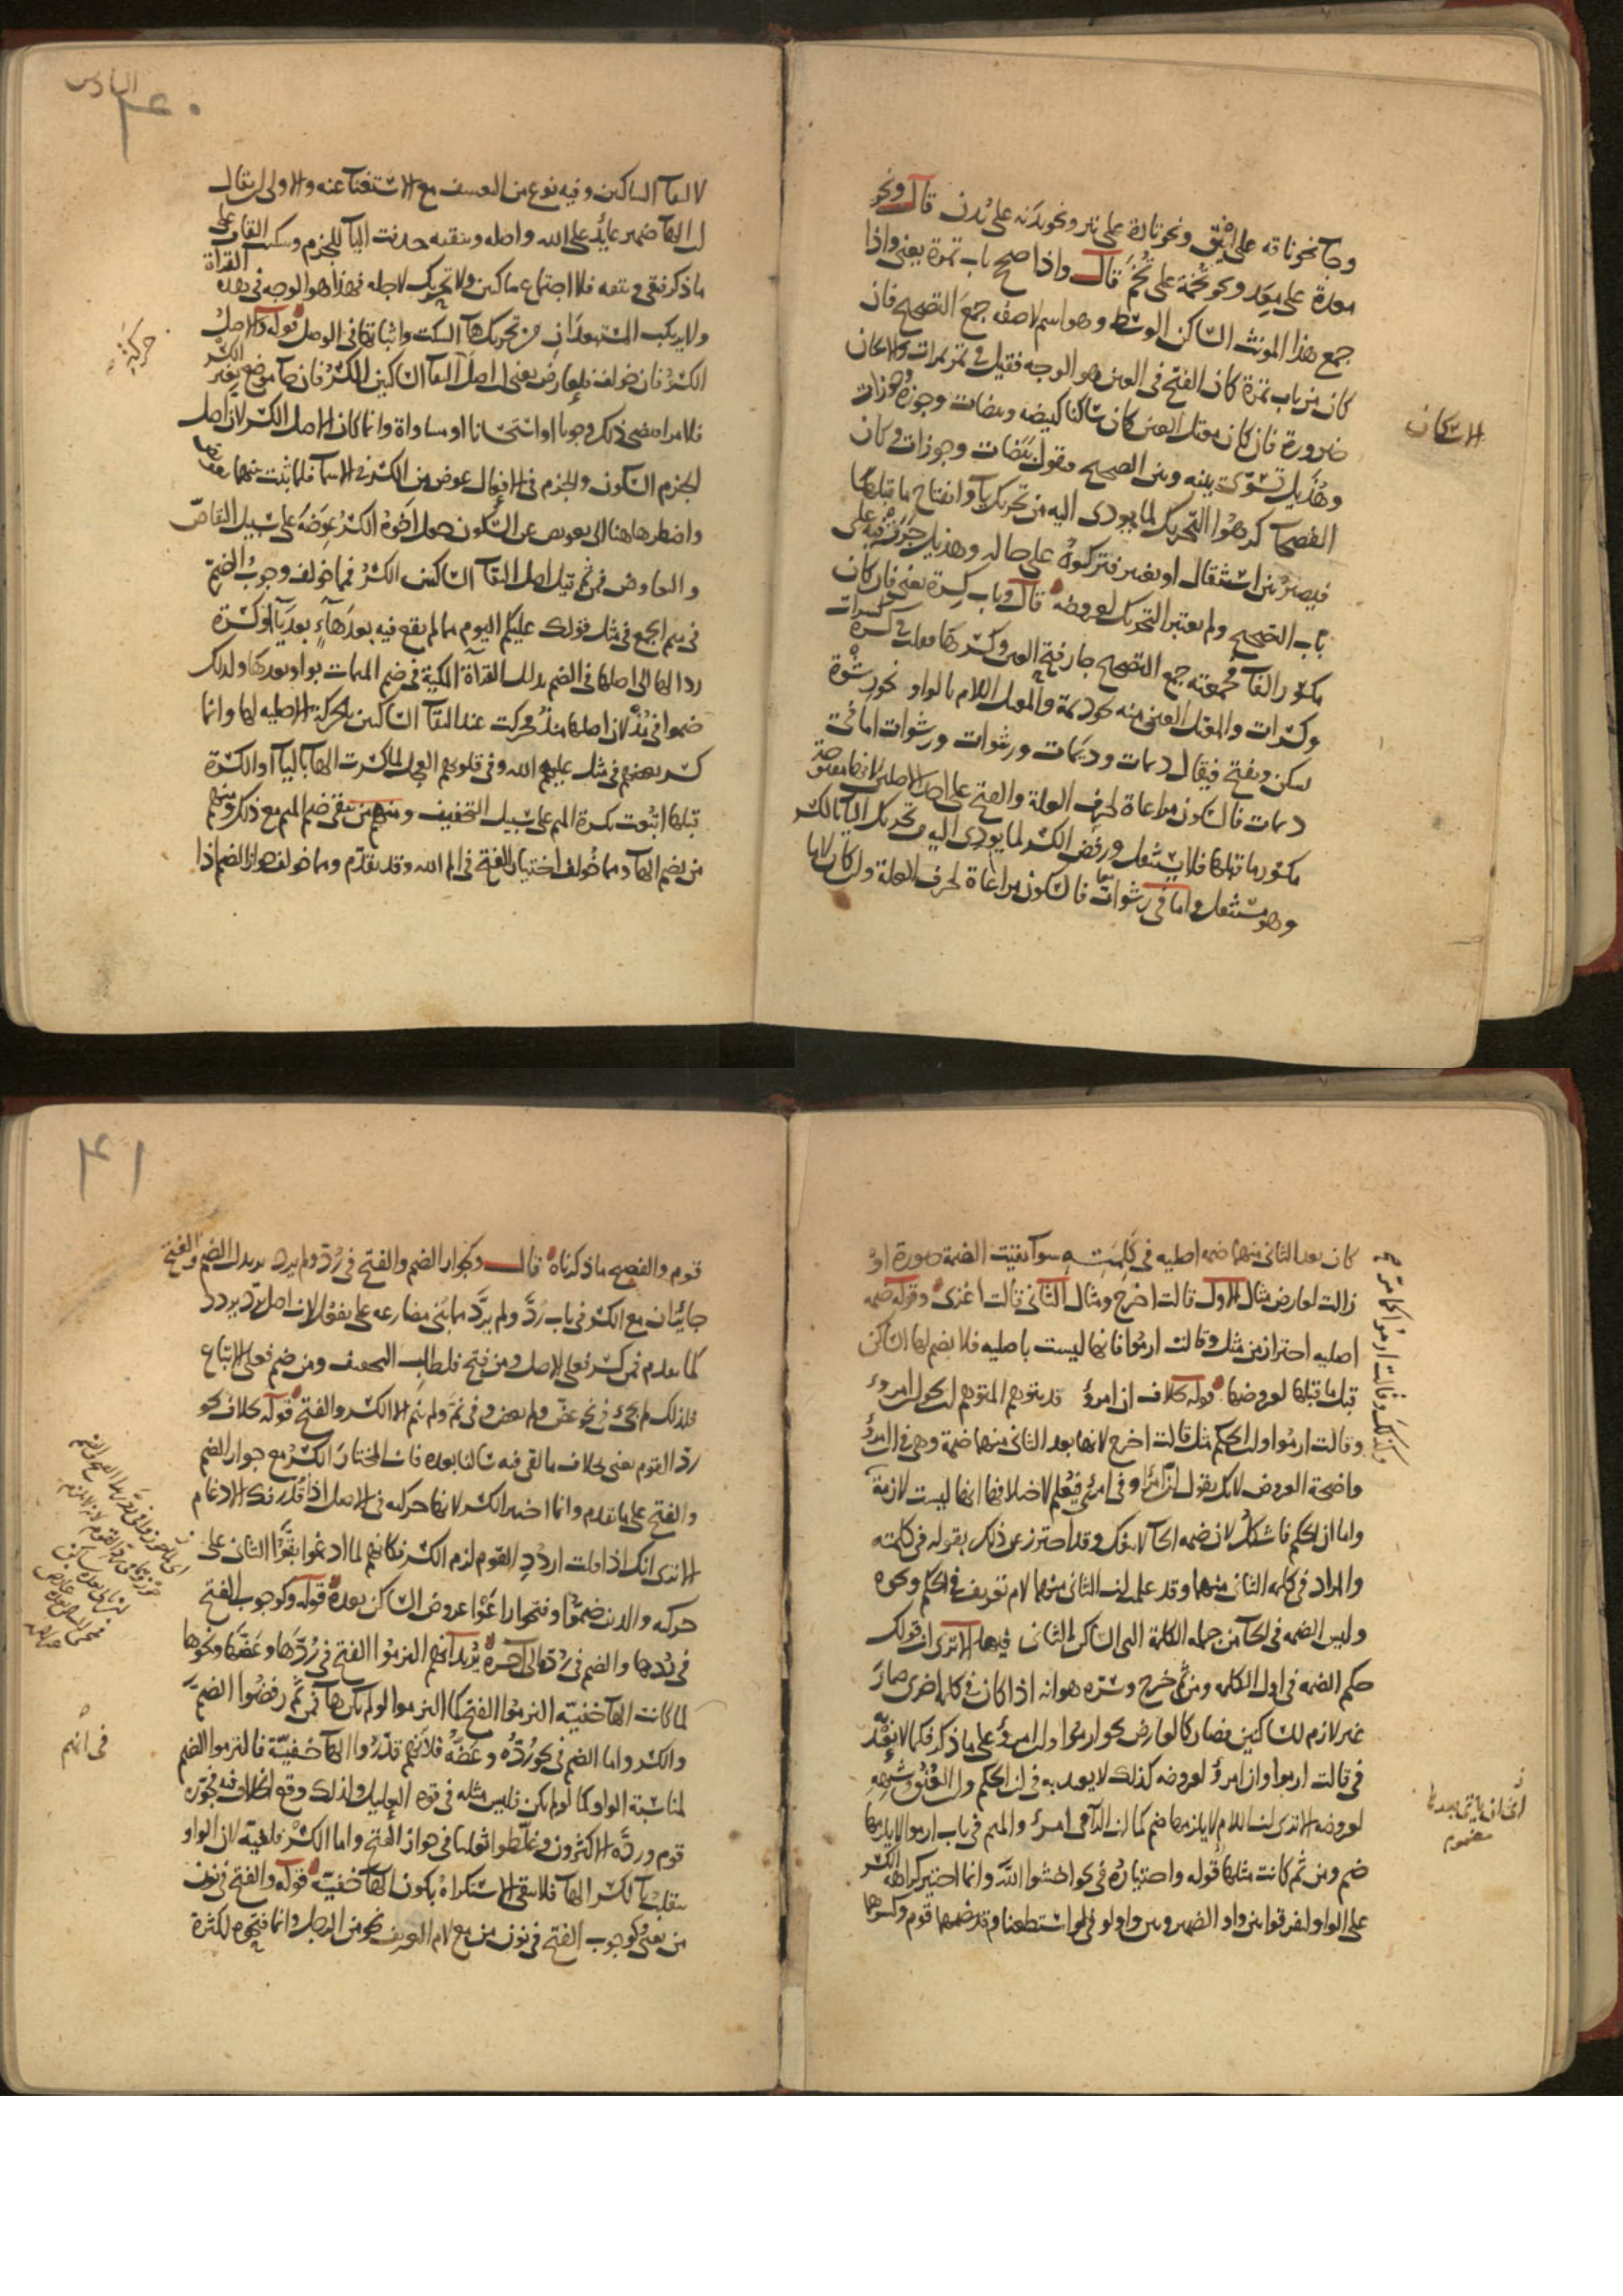 وجآ نحو ناقه على اينق ونحو تارة على تير ونحو بدنه على بدن قال ونحو
معدة على معد ونحو تخمة على تخم قال واذا صح باب تمرة يعنى واذا
جمع هذا المونث الساكن الوسط وهو اسم لا صفه جمع التصحيح فان
كان من باب تمرة كان الفتح فى العين هو الوجه فقيل فى تمرة تمرات والاسكان
ضرورة فان كان معتل العين كان ساكنا كبيضه وبيضات وجوزة وجوزات
وهذيل تسوى بينه وبين الصحيح فتقول بيضات وجوزات وكان
الفصحآ كرهوا التحريك لما يودى اليه من تحريك يآ وانفتاح ما قبلها
فيصير بين استثقال او تغيير فتركوه على حاله وهذيل جرت فيه على
باب الصحيح ولم تعتبر التحريك لعروضه قال وباب كسرة يعنى فان كان
مكسور الفآ فجمعته جمع التصحيح جاز فتح العين وكسرها فقلت فى كسرة كسرات
وكسرات والمعتل العين منه كديمة والمعتل اللام بالواو نحو رشوة
يسكن ويفتح فيقال ديمات وديمات ورشوات ورشوات اما فى
ديمات فالسكون مراعاة لحرف العلة والفتح على اصل الاصلى لانها مفتوحة
مكسور ما قبلها فلا يستثقل ورفض الكسر لما يودى اليه من تحريك اليآ بالكسر
وهو مستثقل واما فى رشوات فالسكون مراعاة لحرف العلة وان كان لاما
الاسكان
السادس
٤٠
لالتقآ الساكنين وفيه نوع من التعسف مع الاستغنآ عنه والاولى ان يقال
ان الهآ ضمير عايد على الله واصله ويتقيه حذفت اليآ للجزم وسكنت القاف على
ما ذكر فبقى ويتقه فلا اجتماع ساكنين ولا تحريك لاجله فهذا هو الوجه فى هذه القرآة
ولا يرتكب المستبعدان من تحريك هآ السكت واثباتها فى الوصل قوله والاصل
الكسر فان خولف فلعارض يعنى ان اصل التقآ الساكنين الكسر فان جآ موضع بغير الكسر
فلامر اقتضى ذلك وجوبا او استحسانا او مساواة وانما كان الاصل الكسر لان اصل
الجزم السكون والجزم فى الافعال عوض من الكسر فى الاسمآ فلما ثبت بينهما تعارض
واضطر هاهنا الى تعويض عن السكون جعل اخوه الكسر عوضه على سبيل التقاص
والتعاوض فمن ثم قيل اصل التقآ الساكنين الكسر فمما خولف وجوب الضم
فى ميم الجمع فى مثل قولك عليكم اليوم مما لم يقع فيه بعد هآء بعد يآ او كسرة
ردا لها الى اصلها فى الضم بدليل القرآة المكية فى ضم الميمات بواو بعدها ولذلك
ضموا فى مذ لان اصلها منذ فحركت عند التقآ الساكنين بالحركة الاصليه لها وانما
كسر بعضهم فى مثل عليهم الله وفى قلوبهم العجل لما كسرت الهآ باليآ او الكسرة
قبلها اتبعت بكسرة الميم على سبيل التخفيف ومنهم من يبقى ضم الميم مع ذلك ومنهم
من يضم الهآ ومما خولف اختيار الفتح فى الم الله وقد تقدم ومما خولف جواز الضم اذا
حركة
كان بعد الثانى منهما ضمه اصليه فى كلمته سوآ بقيت الضمة صورة او
زالت لعارض مثال الاول قالت اخرج ومثال الثانى قالت اغزى وقوله ضمه
اصليه احتراز من مثل وقالت ارموا فانها ليست باصليه فلا يضم لها الساكن
قبل ما قبلها لعروضها قوله بخلاف ان امرؤ قد يتوهم المتوهم ان نحو ان امرؤ
وقالت ارموا وان الحكم مثل قالت اخرج لانها بعد الثانى منهما ضمة وهى فى امرؤ
واضحة العروض لانك تقول ان امرأ وفى امرئ فيعلم لاختلافها انها ليست لازمة
واما ان الحكم فاشكل لان ضمه الحآ لا تنفك وقد احترز عن ذلك بقوله فى كلمته
والمراد فى كلمه الثانى منهما وقد علم ان الثانى منهما لام تعريف فى الحكم ونحوه
وليس الضمه فى الحآ من جمله الكلمة التى الساكن الثانى فيها الا ترى ان قولك
حكم الضمه فى اول الكلمه ومن ثم خرج وسره هو انه اذا كان فى كلمه اخرى صار
غير لازم للساكنين فصار كالعارض نحو ارموا وان امرؤ على ما ذكر فكما لا يعتد
فى قالت ارموا وان امرؤ لعروضه كذلك لا يعتد به فى ان الحكم وان العنق وشبهه
لعروضه الا ترى ان اللام لا يلزمها ضم كما ان الرآ فى امرؤ والميم فى باب ارموا لا يلزمها
ضم ومن ثم كانت مثلها قوله واختياره فى نحو اخشوا الله وانما اختير كراهة الكسر
على الواو ليفرقوا بين واو الضمير وبين واو لو فى لو استطعنا وقد ضمها قوم وكسرها
وكذلك وقالت ارموا
٤١
قوم والفصيح ما ذكرناه قال وكجواز الضم والفتح فى رد ولم يرد يريد ان الضم والفتح
جائزان مع الكسر فى باب رد ولم يرد مما بنى مضارعه على يفعل لان اصل يرد يردد
كما تقدم فمن كسر فعلى الاصل ومن فتح فلطلب التخفيف ومن ضم فعلى الاتباع
فلذلك لم يجئ فى نحو عض ولم يعض وفى نم ولم ينم الا الكسر والفتح قوله بخلاف نحو
رد القوم يعنى بخلاف ما لقى فيه ساكنا بعده فان المختار الكسر مع جواز الضم
والفتح على ما تقدم وانما اختير الكسر لانها حركته فى الاصل اذا قدر فك الادغام
الا ترى انك اذا قلت اردد القوم لزم الكسر فكانهم لما ادغموا بقوا الثانى على
حركته والذين ضموا وفتحوا راعوا عروض الساكن بعده قوله وكوجوب الفتح
فى ردها والضم فى رده الى آخره يريد انهم التزموا الفتح فى ردها وعضها ونحوها
لما كانت الهآ خفيه التزموا الفتح كما التزموا لو لم تكن هآ فمن ثم رفضوا الضم
والكسر واما الضم فى نحو رده وعضه فلانهم قدروا الهآ خفية فالتزموا الضم
لمناسبة الواو كما لو لم يكن فليس مثله فى قوه التعليل ولذلك وقع الخلاف فيه فجوزه
قوم ورده الاكثرون وغلطوا ثعلبا فى جواز الفتح واما الكسر فلغيه لان الواو
تنقلب يآ لكسر الهآ فلا يبقى الاستكراه بكون الهآ خفية قوله والفتح فى نون
من يعنى وكوجوب الفتح فى نون من مع لام التعريف نحو من الرجل وانما فتحوه لكثرة
فى انهم